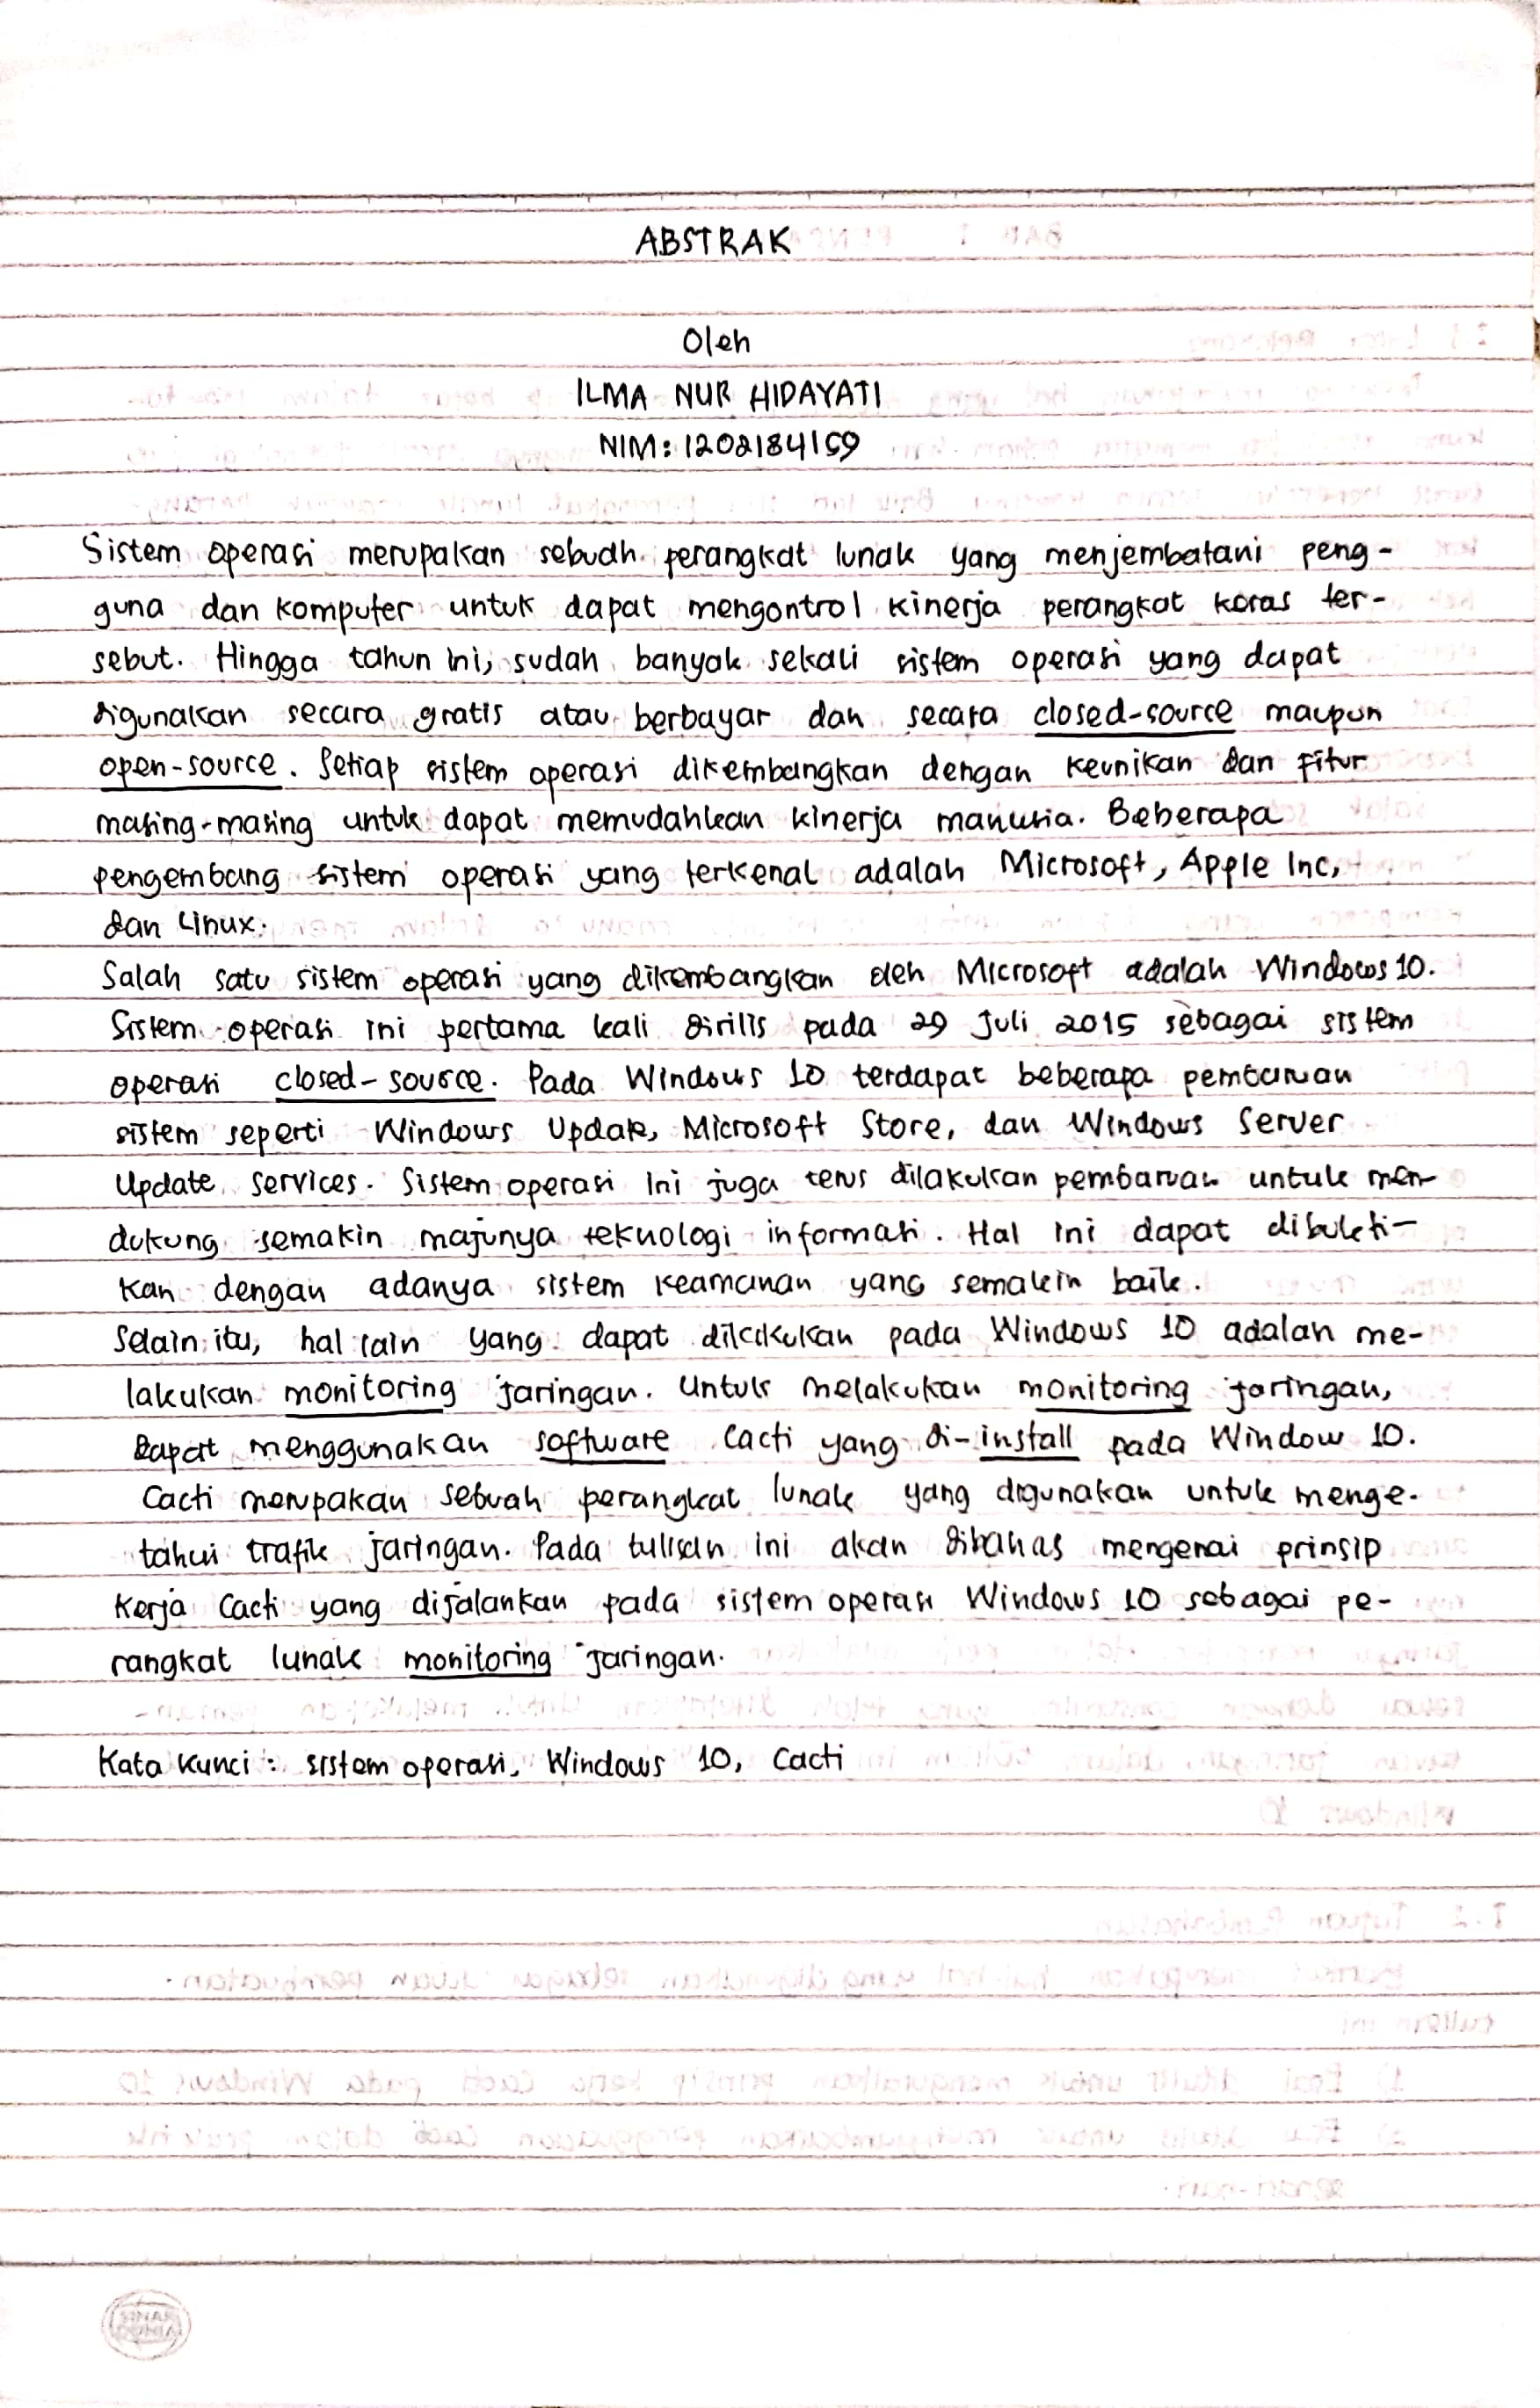 ABSTRAK
Oleh
ILMA NUR HIDAYATI
NIM: 1202184159
Sistem operasi merupakan sebuah perangkat lunak yang menjembatani peng-
guna dan komputer untuk dapat mengontrol kinerja perangkat keras ter-
sebut. Hingga tahun ini, sudah banyak sekali sistem operasi yang dapat
digunakan secara gratis atau berbayar dan secara closed-source maupun
open-source. Setiap sistem operasi dikembangkan dengan keunikan dan fitur
masing-masing untuk dapat memudahkan kinerja manusia. Beberapa
pengembang sistem operasi yang terkenal adalah Microsoft, Apple Inc,
dan Linux.
Salah satu sistem operasi yang dikembangkan oleh Microsoft adalah Windows 10.
Sistem operasi ini pertama kali dirilis pada 29 Juli 2015 sebagai sistem
operasi closed-source. Pada Windows 10 terdapat beberapa pembaruan
sistem seperti Windows Update, Microsoft Store, dan Windows Server
Update Services. Sistem operasi ini juga terus dilakukan pembaruan untuk men-
dukung semakin majunya teknologi informasi. Hal ini dapat dibukti-
kan dengan adanya sistem keamanan yang semakin baik.
Selain itu, hal lain yang dapat dilakukan pada Windows 10 adalah me-
lakukan monitoring jaringan. Untuk melakukan monitoring jaringan,
dapat menggunakan software Cacti yang di-install pada Window 10.
Cacti merupakan sebuah perangkat lunak yang digunakan untuk menge-
tahui trafik jaringan. Pada tulisan ini akan dibahas mengenai prinsip
kerja Cacti yang dijalankan pada sistem operasi Windows 10 sebagai pe-
rangkat lunak monitoring jaringan.
Kata kunci : sistem operasi, Windows 10, Cacti